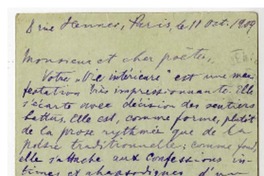 rue Henner, Paris, le 11 oct. 1909
Monsieur et cher poète,
Votre "Vie intérieure" est une mani-
festation très impressionnante. Elle
s'écarte avec décision des sentiers
battus. Elle est, comme forme, plutôt
de la prose rythmée que de la
poésie traditionnelle; comme fond,
elle s'attache aux confessions in-
times et rhapsodiques d'un